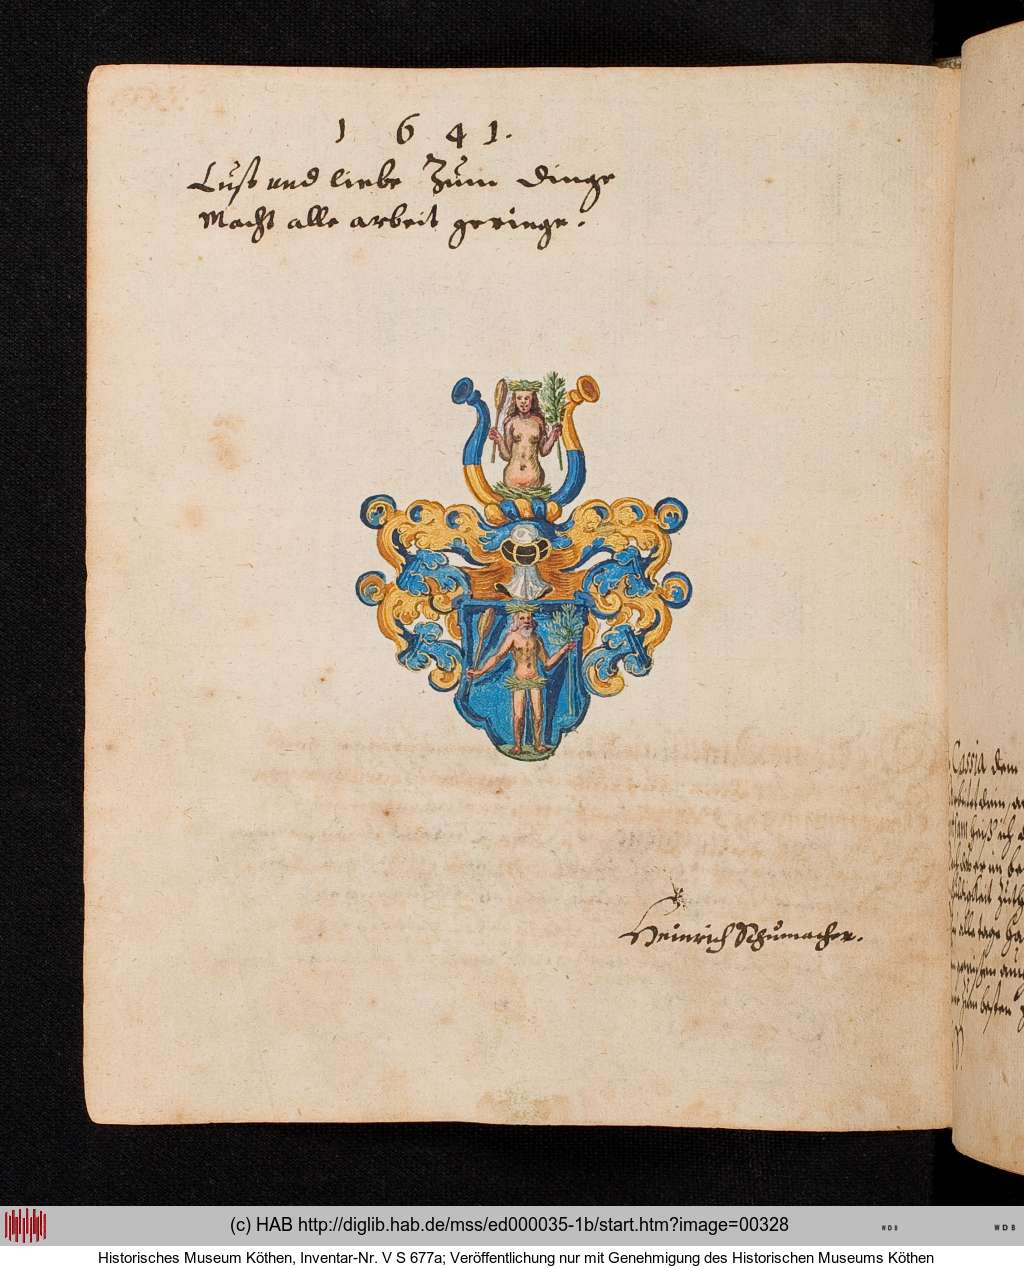 1 6 4 1.
Lust und liebe Zum dinge
Macht alle arbeit geringe.
Heinrich Schumacher.
Cassia dem
(c) HAB http://diglib.hab.de/mss/ed000035-1b/start.htm?image=00328
WDB
WDB
Historisches Museum Köthen, Inventar-Nr. V S 677a; Veröffentlichung nur mit Genehmigung des Historischen Museums Köthen